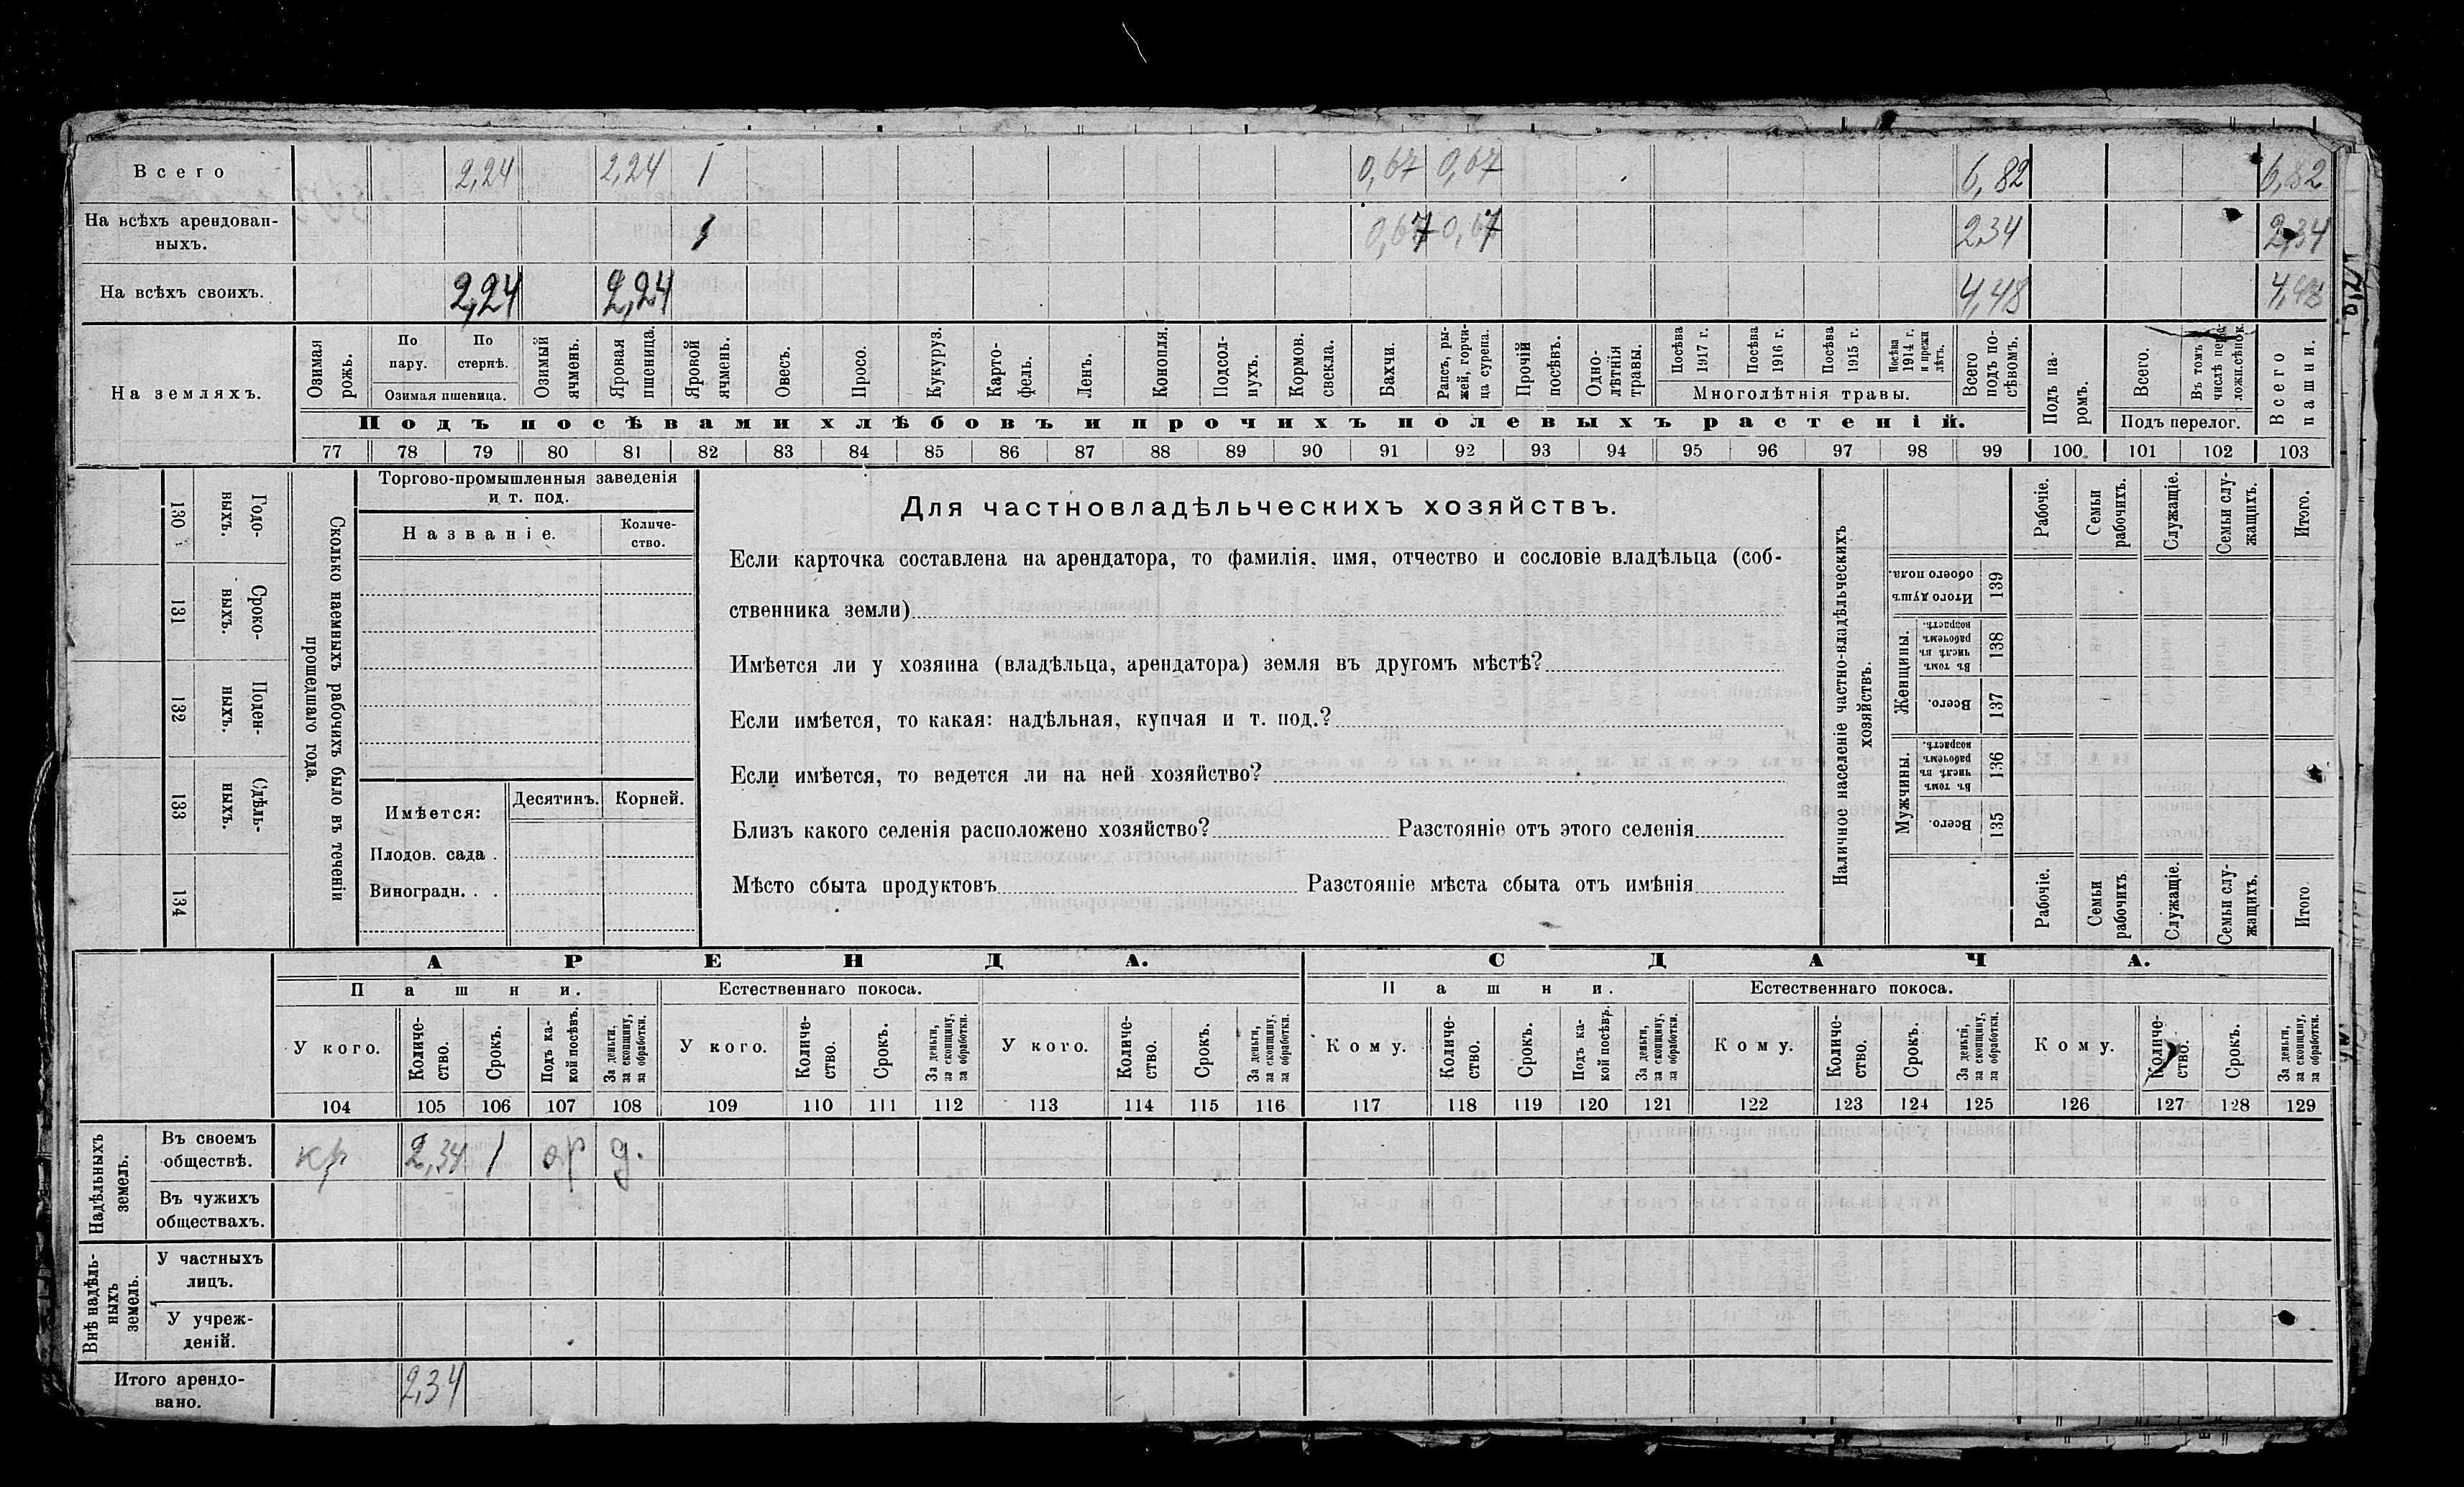 Всего 2,24 2,24 1 0,67 0,67 6,82 6,82
На всѣхъ арендован-
ныхъ. 1 0,67 0,67 2,34 2,34
На всѣхъ своихъ. 2,24 2,24 4,48 4,48
На земляхъ.
Озимая рожь.
По пару.
По стернѣ.
Озимая пшеница.
Озимый ячмень.
Яровая пшеница.
Яровой ячмень.
Овесъ.
Просо.
Кукуруз.
Карто-
фель.
Ленъ.
Конопля.
Подсол-
нухъ.
Кормов.
свекла.
Бахчи.
Рапсъ, ры-
жей, горчи-
ца сурепа.
Прочій
посѣвъ.
Одно-
лѣтнія
травы.
Посѣва
1917 г.
Посѣва
1916 г.
Посѣва
1915 г.
Посѣва
1914 г.
и прежн
лѣтъ.
Многолѣтнія травы.
Всего
подъ по-
сѣвомъ.
Подъ па-
ромъ.
Всего.
Въ томъ
числѣ пере-
ложн.сѣнок.
Подъ перелог.
Всего
пашни.
Подъ посѣвами хлѣбовъ и прочихъ полевыхъ растеній.
77 78 79 80 81 82 83 84 85 86 87 88 89 90 91 92 93 94 95 96 97 98 99 100 101 102 103
130 Годо-
выхъ.
131 Сроко-
выхъ.
132 Поден-
ныхъ.
133 Сдѣль-
ныхъ.
134
Сколько наемныхъ рабочихъ было въ теченіи
прошедшаго года.
Торгово-промышленныя заведенія
и т. под.
Названіе.
Количе-
ство.
Имѣется:
Десятинъ.
Корней.
Плодов. сада .
Виноградн. . .
Для частновладѣльческихъ хозяйствъ.
Если карточка составлена на арендатора, то фамилія, имя, отчество и сословіе владѣльца (соб-
ственника земли)
Имѣется ли у хозяина (владѣльца, арендатора) земля въ другомъ мѣстѣ?
Если имѣется, то какая: надѣльная, купчая и т. под.?
Если имѣется, то ведется ли на ней хозяйство?
Близъ какого селенія расположено хозяйство? Разстояніе отъ этого селенія
Мѣсто сбыта продуктовъ Разстояніе мѣста сбыта отъ имѣнія
Наличное населеніе частно-владѣльческихъ
хозяйствъ.
Рабочіе.
Семьи
рабочихъ.
Служащіе.
Семьи слу-
жащихъ.
Итого.
Итого душъ
обоего пола.
139
Женщины.
Въ томъ
числѣ въ
рабочемъ
возрастѣ.
138
Всего.
137
Мужчины.
Въ томъ
числѣ въ
рабочемъ
возрастѣ.
136
Всего.
135
Рабочіе.
Семьи
рабочихъ.
Служащіе.
Семьи слу-
жащихъ.
Итого
АРЕНДА. СДАЧА.
Пашни. Естественнаго покоса. Пашни. Естественнаго покоса.
У кого.
Количе-
ство.
Срокъ.
Подъ ка-
кой посѣвъ.
За деньги,
за скопщину,
за обработки.
У кого.
Количе-
ство.
Срокъ.
За деньги,
за скопщину,
за обработки.
У кого.
Количе-
ство.
Срокъ.
За деньги,
за скопщину,
за обработки.
Кому.
Количе-
ство.
Срокъ.
Подъ ка-
кой посѣвъ.
За деньги,
за скопщину,
за обработки.
Кому.
Количе-
ство.
Срокъ.
За деньги,
за скопщину,
за обработки.
Кому.
Количе-
ство.
Срокъ.
За деньги,
за скопщину,
за обработки.
104 105 106 107 108 109 110 111 112 113 114 115 116 117 118 119 120 121 122 123 124 125 126 127 128 129
Надѣльныхъ
земель.
Въ своемъ
обществѣ. кр 2,34 1 яр д.
Въ чужихъ
обществахъ.
Внѣ надѣль-
ныхъ
земель.
У частныхъ
лицъ.
У учреж-
деній.
Итого арендо-
вано. 2,34